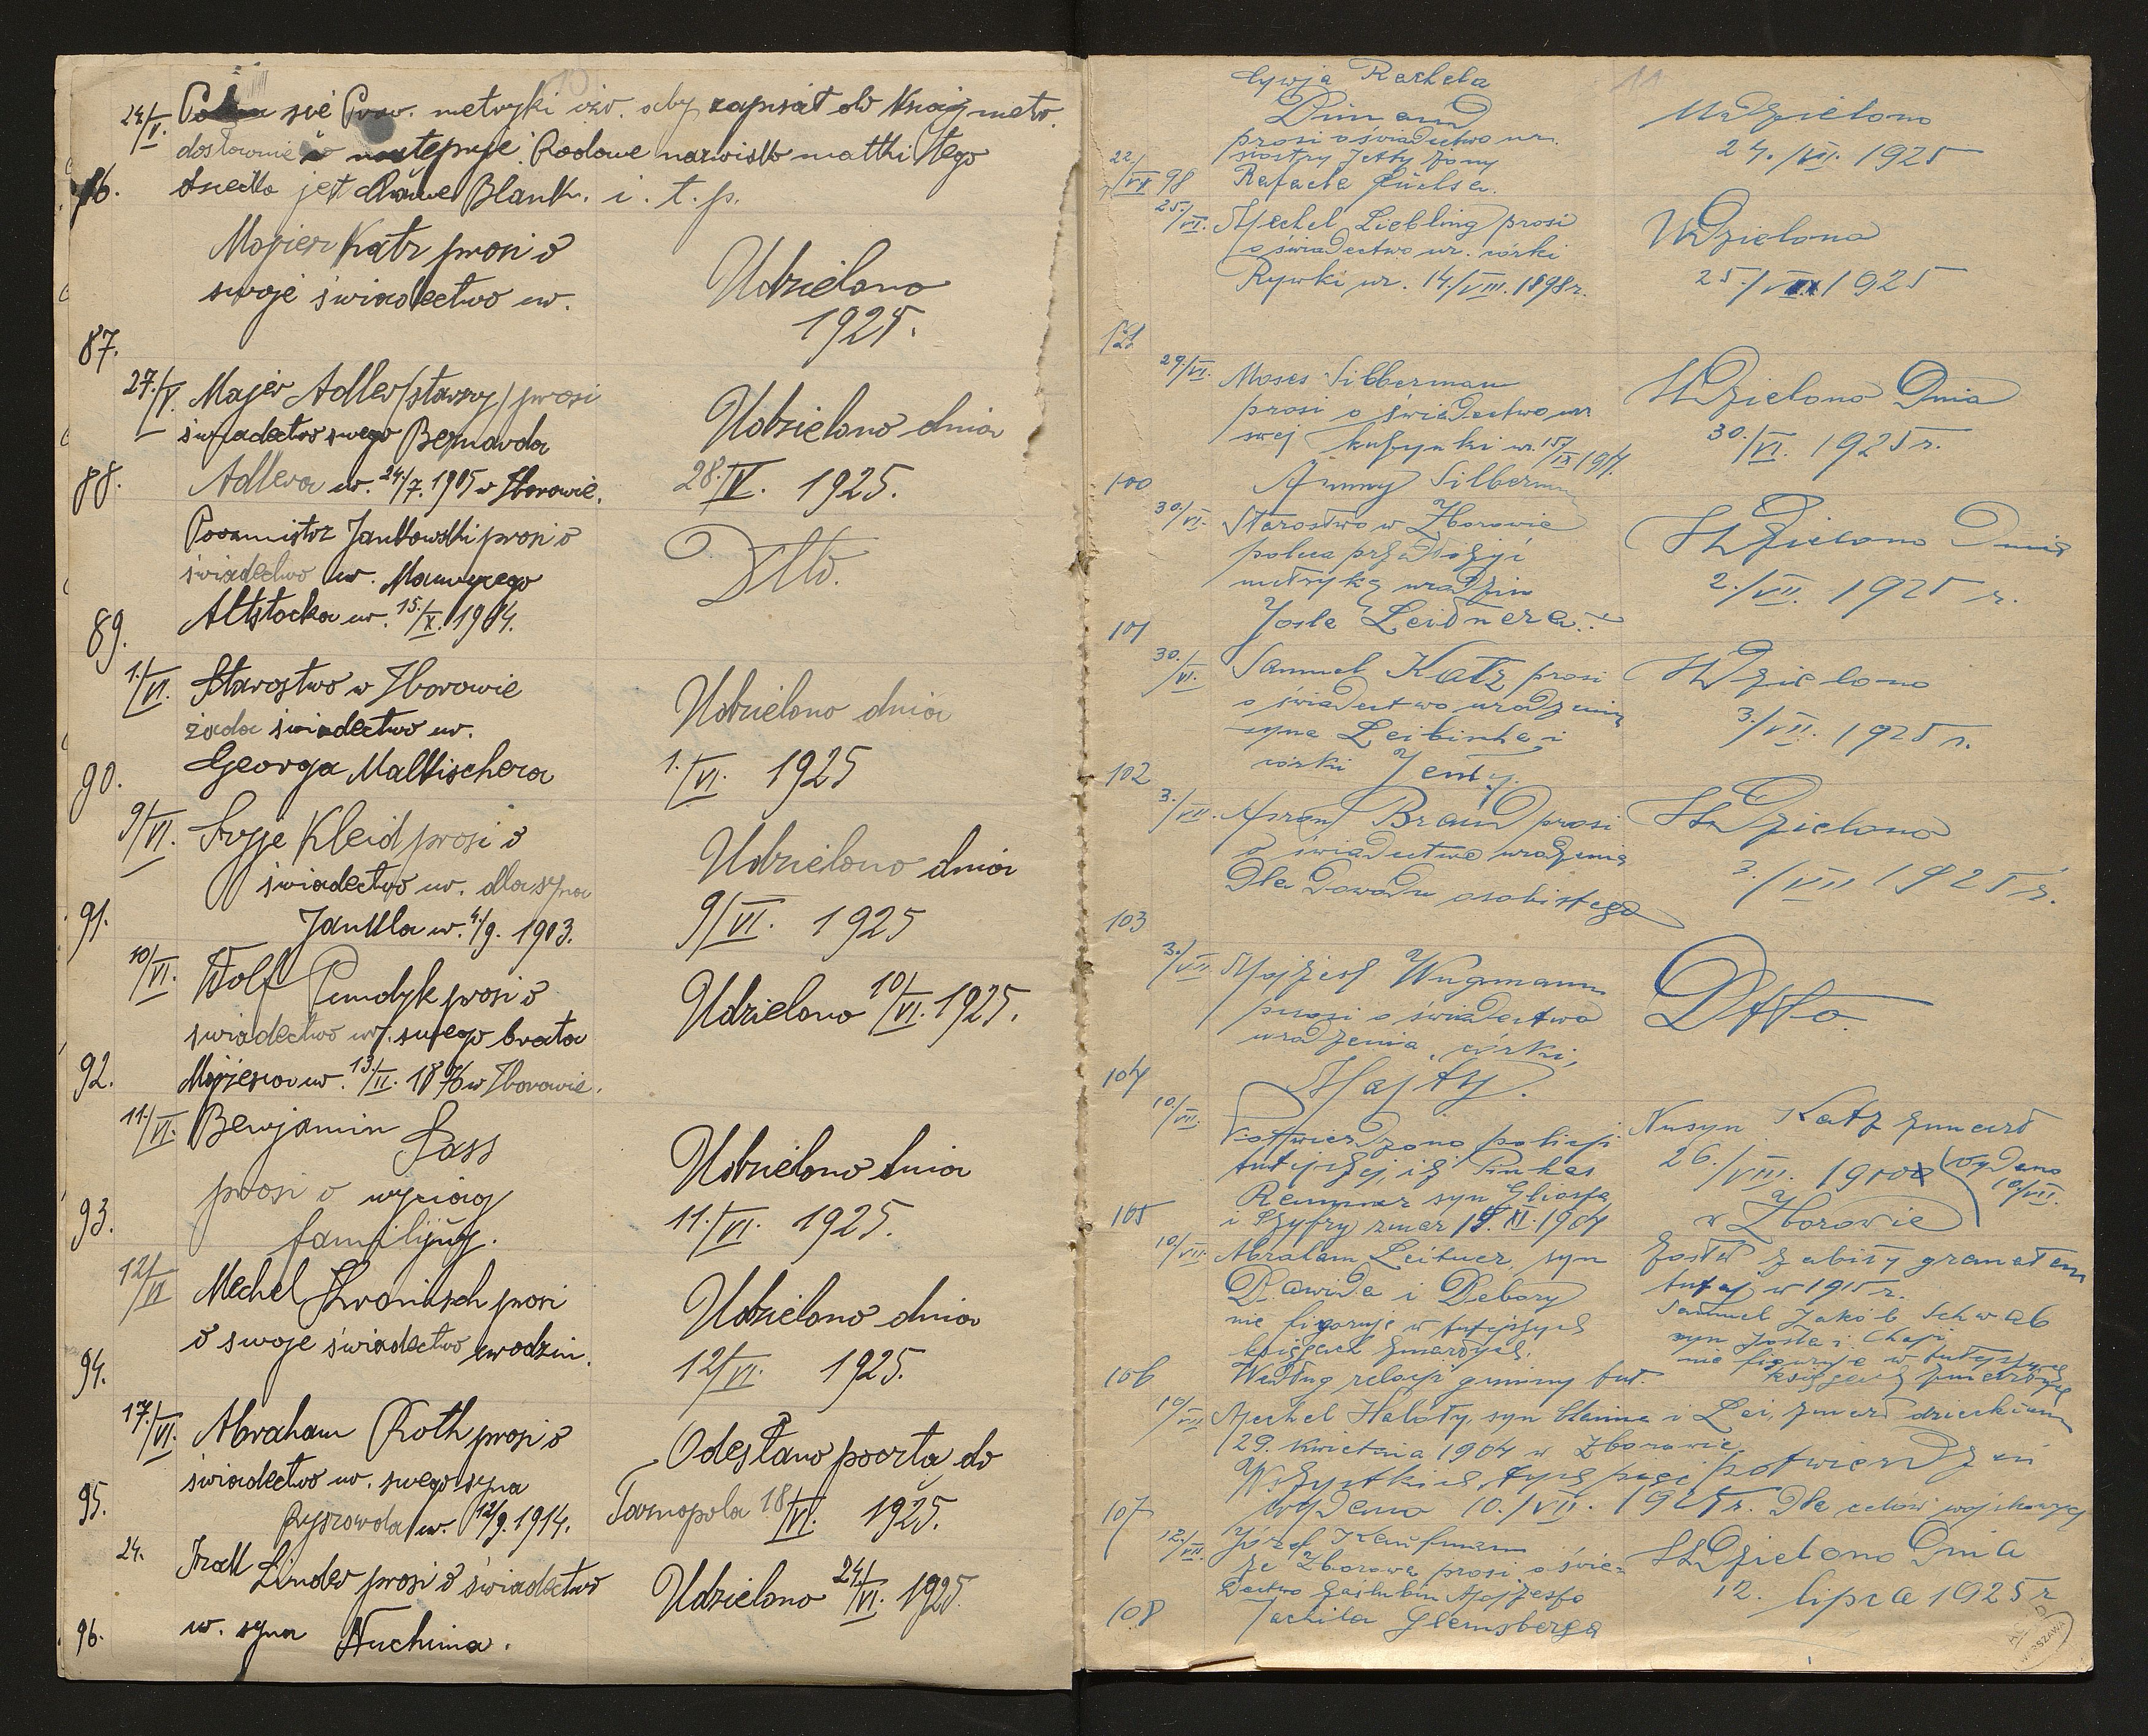 10
24./V. się Prow. metryki izr. aby zapisał do Księg metr.
dosłownie następuje. Rodowe nazwisko matki tego
86. dziecka jest Blank. i. t. p.
Mojżesz Katz prosi o
swoje świadectwo ur.
Udzielono
1925.
87.
27./V. Majer Adler (starszy) prosi
świadectwo swego Bernarda
88. Adlera ur. 24./7. 1905 w Zborowie.
Udzielono dnia
28. IV. 1925.
Jankowski prosi o
świadectwo ur. Maurycego
89. Altstocka ur. 15./X. 1904.
Dtto.
1./VI. Starostwo w Zborowie
żąda świadectwo ur.
90. Georga Maltischera
Udzielono dnia
1./VI. 1925
9/VI. Kleid prosi o
świadectwo ur. dla syna
91. Jankla ur. 4./9. 1903.
Udzielono dnia
9/VI. 1925
10/VI. Wolf Pundyk prosi o
świadectwo ur. swego brata
92. Mojżesza ur. 13./II. 1876 w Zborowie.
Udzielono 10/VI. 1925.
11./VI. Benjamin Sass
prosi o wyciąg
93. familijny.
Udzielono dnia
11./VI. 1925.
12/VI Mechel prosi
o swoje świadectwo urodzin.
94.
Udzielono dnia
12/VI. 1925.
17./VI. Abraham Roth prosi o
świadectwo ur. swego syna
95. Ryszarda ur. 12/9. 1914.
Odesłano pocztą do
Tarnopola 18/VI. 1925.
24. Linder prosi o świadectwo
96. ur. syna Nuchima.
Udzielono 24./VI. 1925.
11
Cywja Rachela
Dimand
prosi o świadectwo ur.
siostry Jetty żony
22./VI 98 Rafaela Fuchsa.
Udzielono
24./VII. 1925
25./VI. Mechel Liebling prosi
o świadectwo ur. córki
Rywki ur. 14./VIII. 1898 r.
Udzielono
25./VII 1925
29/VI. Moses Silberman
prosi o świadectwo ur
swej kuzynki ur. 15./IX 1914.
100 Anny Silberman
Udzielono Dnia
30./VI. 1925 r.
30./VI. Starostwo w Zborowie
poleca przedłożyć
metrykę urodzin
101 Josla Leidnera.
Udzielono Dnia
2./VII. 1925 r.
30./VI. Samuel Katz prosi
o świadectwo urodzenia
syna Leibisha i
102 córki Jenty.
Udzielono
3./VII. 1925 r.
3./VII. Braun prosi
o świadectwo urodzenia
Dla Dowodu osobistego
103
Udzielono
3./VII 1925 r.
3./VII Mojżesz Wugmann
prosi o świadectwo
urodzenia córki,
104 Majty.
Dtto.
10./VII. Potwierdzono policji
tutejszej, iż Pinkas
syn
105 i Szyfry zmar 18. XI. 1904
Nusyn Katz zmarł
26./VIII. 1900 (wydano 10/VII.
w Zborowie
10/VII. Abraham Leitner, syn
Dawida i Debory
nie figuruje w tutejszych
księgach zmarłych.
106 Według relacji gminy tut.
został zabity granatem
tutaj w 1915 r.
Samuel Jakób Schwab
syn Josla i Chaji
nie figuruje w tutejszych
księgach zmarłych
10/VII Mechel Hałoty, syn i Lei, zmarł dzieckiem
29. kwietnia 1904 w Zborowie
Wszystkich tych potwierdzeń
107 wydano 10./VII. 1925 r. Dla celów wojskowych
12./VII. Józef Kaufmann
ze Zborowa prosi o świa-
dectwo zaślubin Mojżesza
108 Jachila Glemsberga
Udzielono Dnia
12. lipca 1925 r